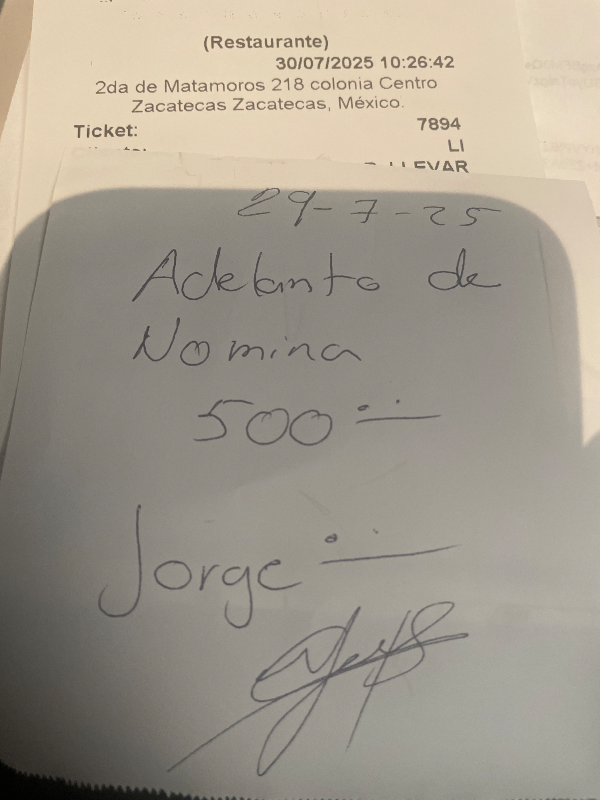 (Restaurante)
30/07/2025 10:26:42
2da de Matamoros 218 colonia Centro
Zacatecas Zacatecas, México.
Ticket: 7894
LI
LLEVAR
29-7-25
Adelanto de
Nomina
500
Jorge